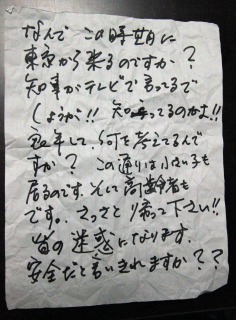 なんで この時期に
東京から来るのですか?
知事がテレビで言ってるで
しょうが!! 知ってるのかよ!!
良い年して、何を考えてるんで
すか? この通りは小さい子も
居るのです。そして高齢者も
です。、さっさと帰って下さい!!
皆の迷惑になります。
安全だと言いきれますか??